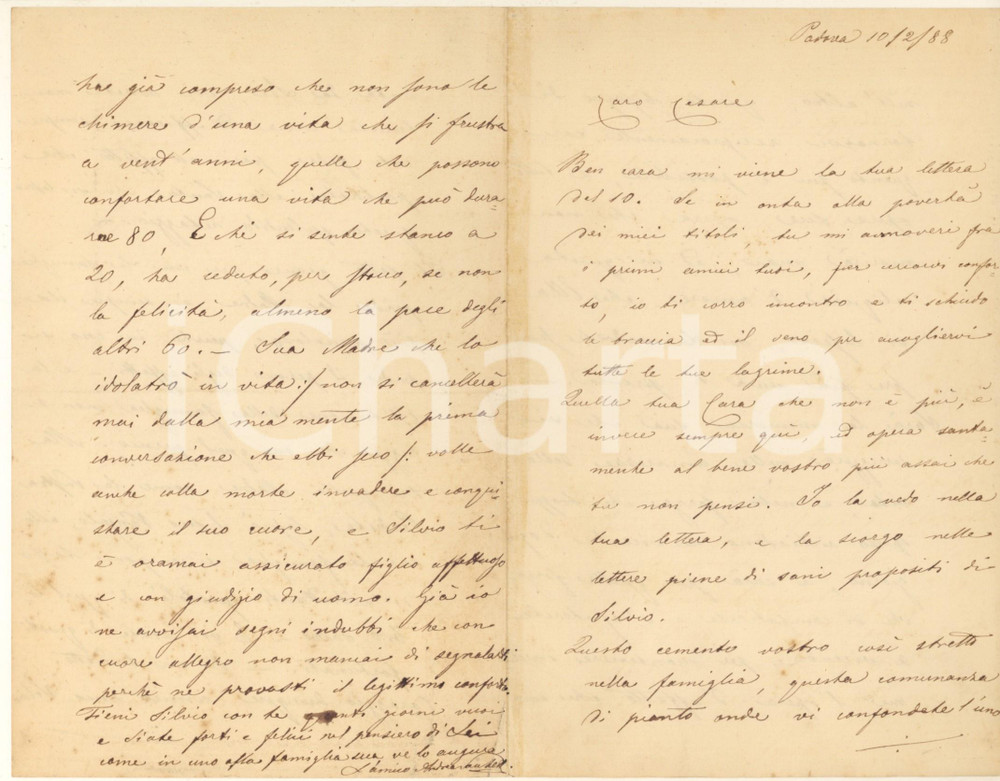 Padova 10/2/88
Caro Cesare
Ben cara mi viene la tua lettera
del 10. Se in onta alla povertà
dei miei titoli, tu mi annoveri fra
i primi amici tuoi, per confor-
to, io ti corro incontro e ti schiudo
le braccia ed il seno per accogliervi
tutte le tue lagrime.
Quella tua Cara che non è più, è
invece sempre quì, ed opera santa-
mente al bene vostro più assai che
tu non pensi. Io la vedo nella
tua lettera, e la scorgo nelle
lettere piene di sani propositi di
Silvio.
Questo cemento vostro così stretto
nella famiglia, questa comunanza
di pianto onde vi confondete l'uno
ha già compreso che non sono le
chimere d'una vita che si frustra
a vent'anni, quelle che possono
confortare una vita che può dura-
re 80, E chi si sente stanco a
20, ha ceduto, per stracco, se non
la felicità, almeno la pace degli
altri 60. — Sua Madre che lo
idolatrò in vita :/ non si cancellerà
mai dalla mia mente la prima
conversazione che ebbi seco /: volle
anche colla morte invadere e conqui-
stare il suo cuore, e Silvio ti
è oramai assicurato figlio affettuoso
e con giudizio di uomo. Già io
ne avvisai segni indubbi che con
cuore allegro non mancai di segnalarti
perchè ne provasti il legittimo conforto.
Tieni Silvio con te quanti giorni vuoi
e siate forti e felici nel pensiero di Lei
come in uno alla famiglia sua ve lo augura
L'amico Andrea